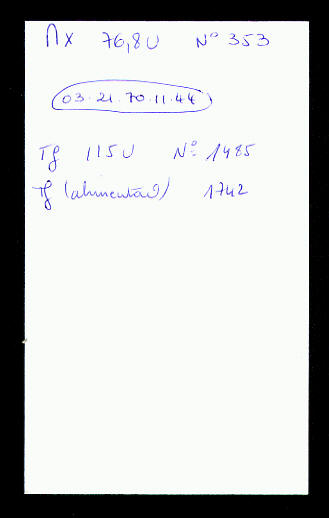 Mx 76,8U N° 353
03.21.70.11.44
Tg 115U N° 1485
Tg (alimentad) 1742